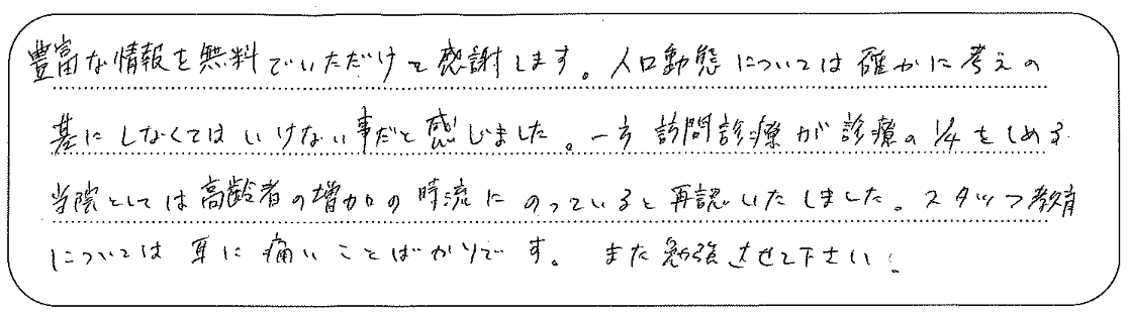 豊富な情報を無料でいただけて感謝します。人口動態については確かに考えの
基にしなくてはいけない事だと感じました。一方訪問診療が診療の1/4をしめる
当院としては高齢者の増加の時流にのっていると再認いたしました。スタッフ教育
については耳に痛いことばかりです。また勉強させて下さい!